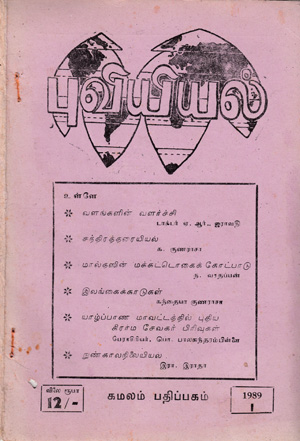 புவியியல்
உள்ளே
வளங்களின் வளர்ச்சி
டாக்டர் ஏ. ஆர்.
சந்திரத்தரையியல்
க. குணராசா
மால்தஸின் மக்கட்தொகைக் கோட்பாடு
த.
இலங்கைக்காடுகள்
கந்தையா குணராசா
யாழ்ப்பாண மாவட்டத்தில் புதிய
கிராம சேவகர் பிரிவுகள்
பேராசிரியர், பொ. பாலசுந்தரம்பிள்ளை
நுண்காலநிலையியல்
இரா.
விலை ரூபா
12/-
கமலம் பதிப்பகம்
1989
1